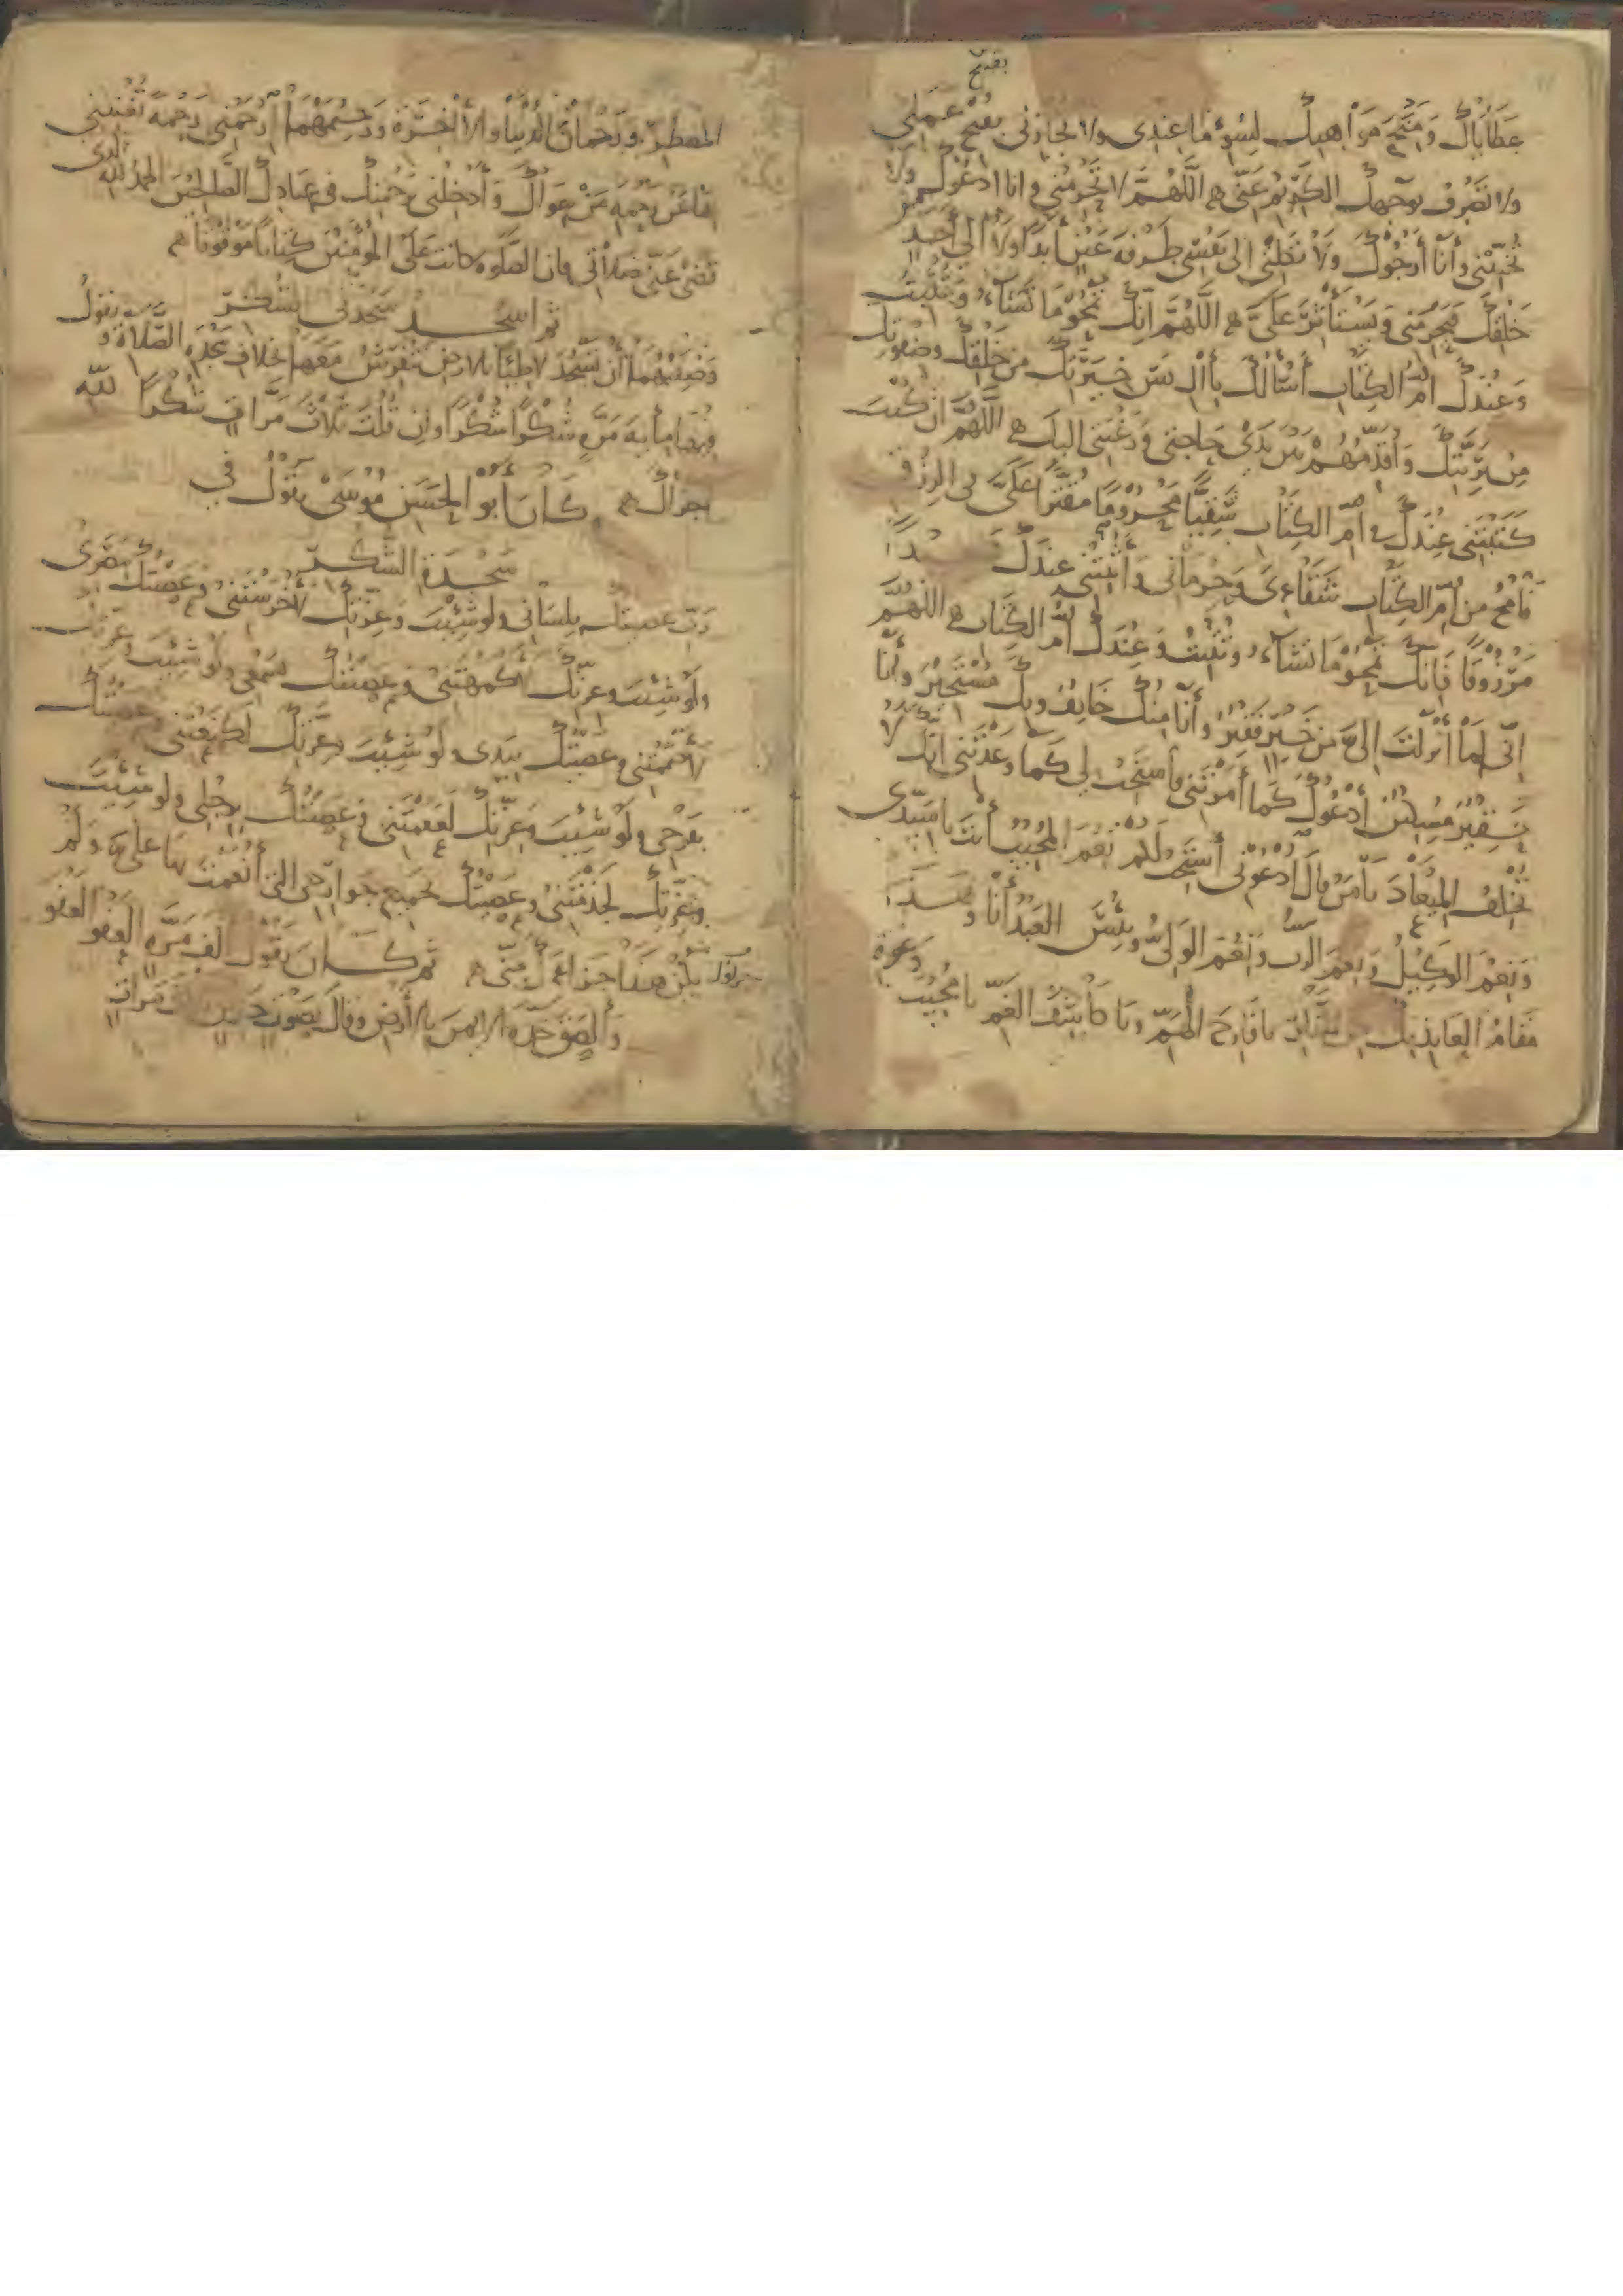 بقبيح
عطاياك ومنحة مواهبك لسوء ما عندى ولا تجازنى بقبح عملى
ولا تصرف بوجهك الكريم عنى اللهم لا تحرمنى وانا ادعوك ولا
تخيبنى وأنا أرجوك ولا تكلنى الى نفسى طرفة عين أبدا ولا الى أحد من
خلقك فيحرمنى ويستأثر على اللهم انك تمحو ما تشاء وتثبت
وعندك أم الكتاب أسألك بآل يس خيرتك من خلقك وصفوتك
من بريتك وأقدمهم بين يدى حاجتى ورغبتى اليك اللهم ان كنت
كتبتنى عندك فى أم الكتاب شقيا محروما مقترا على فى الرزق
فامح من أم الكتاب شقاءى وحرمانى وأثبتنى عندك
مرزوقا فانك تمحو ما تشاء وتثبت وعندك أم الكتاب اللهم
انى لما أنزلت الى من خير فقير وأنا منك خايف وبك مستجير وأنا
حقير مسكين أدعوك كما أمرتنى فاستجب لى كما وعدتنى انك لا
تخلف الميعاد يا من قال ادعونى أستجب لكم نعم المجيب أنت يا سيدى
ونعم الوكيل ونعم الرب ونعم الولى وبئس العبد أنا وهذا
مقام العايذ بك من النار يا فارج الهم ويا كاشف الغم يا مجيب دعوة
المضطرين ورحمان الدنيا والأخرة ورحيمهما ارحمنى رحمة تغنينى
بها عن رحمة من سواك وأدخلنى برحمتك فى عبادك الصالحين الحمد لله الذى
قضى عنى صلاتى فان الصلوة كانت على المؤمنين كتابا موقوتا
ثم اسجد سجدتى الشكر
وصفتهما أن تسجد لاطئا بالارض تفرش معها خلاف سجدة الصلاة و تقول
فيها مأية مرة شكرا شكرا وان قلت ثلاث مرات شكرا لله
اجزاك كان أبو الحسن موسى يقول في
سجدة الشكر
رب عصيتك بلسانى ولو شئت وعزتك لأخرستنى وعصيتك ببصرى
ولو شئت وعزتك لأكمهتنى وعصيتك بسمعى ولو شئت وعزتك
لأصممتنى وعصيتك بيدى ولو شئت وعزتك لكنعتنى وعصيتك
بفرجى ولو شئت وعزتك لعقمتنى وعصيتك برجلى ولو شئت
وعزتك لجذمتنى وعصيتك بجميع جوارحى التى أنعمت بها على ولم
يكن هذا جزاءك منى ثم كان يقول ألف مرة العفو العفو
وألصق خده الايمن بالأرض وقال بصوت حزين ثلاث مرات